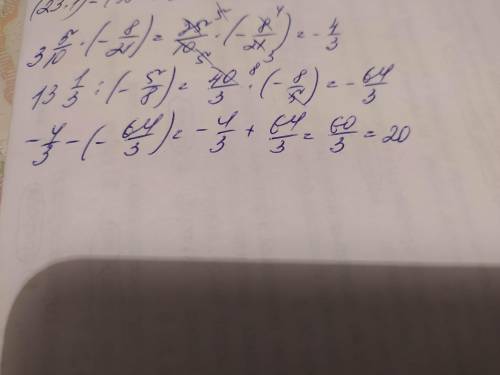 3 5/10 · (- 8/21) = 35/10 · (- 8/21) = - 4/3
13 1/3 : (- 5/8) = 40/3 · (- 8/5) = - 64/3
- 4/3 - (- 64/3) = - 4/3 + 64/3 = 60/3 = 20